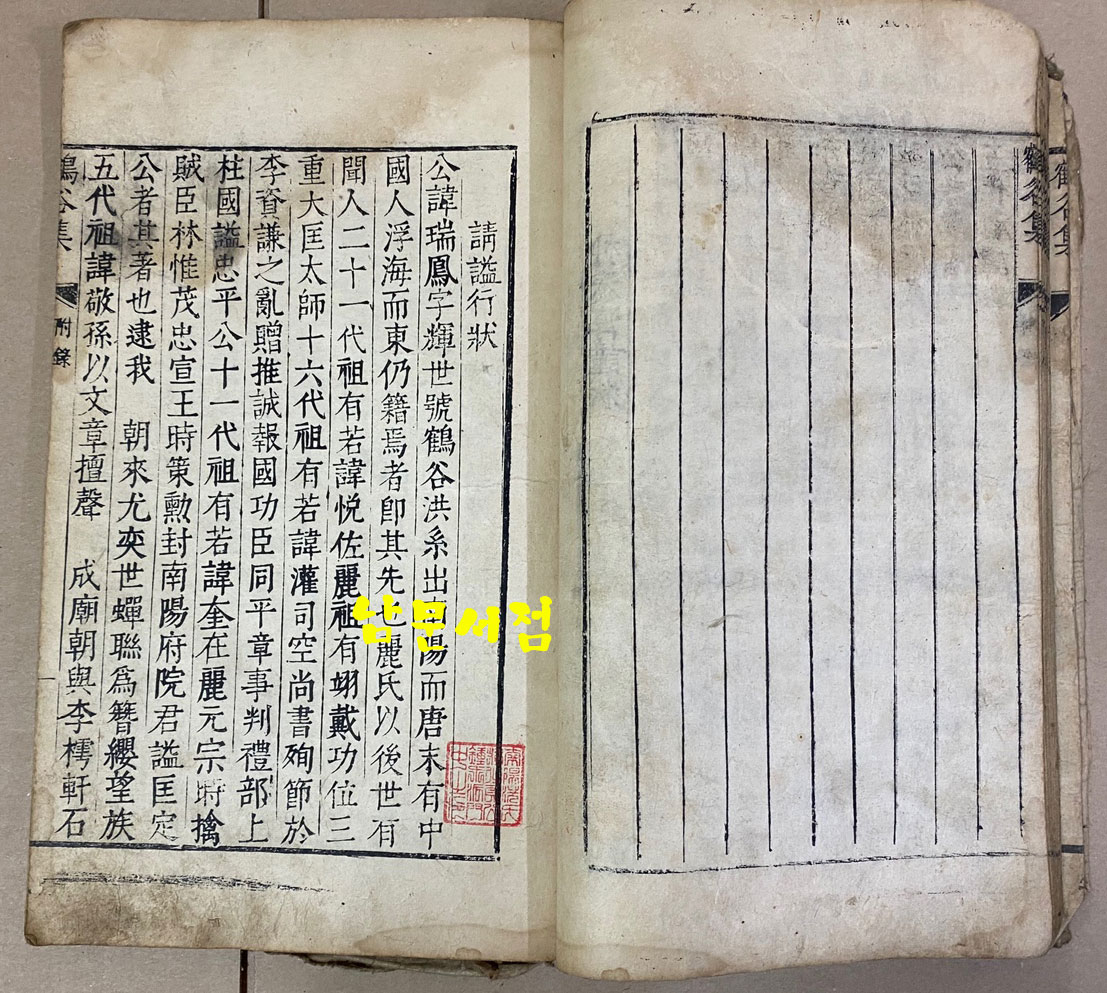 鶴谷集
鶴谷集
請謚行狀
公諱瑞鳳字輝世號鶴谷洪系出南陽而唐末有中
國人浮海而東仍籍焉者卽其先也麗氏以後世有
聞人二十一代祖有若諱悅佐麗祖有翊戴功位三
重大匡太師十六代祖有若諱灌司空尚書殉節於
李資謙之亂贈推誠報國功臣同平章事判禮部上
柱國謚忠平公十一代祖有若諱奎在麗元宗時擒
賊臣林惟茂忠宣王時策勳封南陽府院君謚匡定
公者其著也逮我 朝來尤奕世蟬聯爲簪纓望族
五代祖諱敬孫以文章擅聲 成廟朝與李樗軒石
鶴谷集 附錄
남문서점